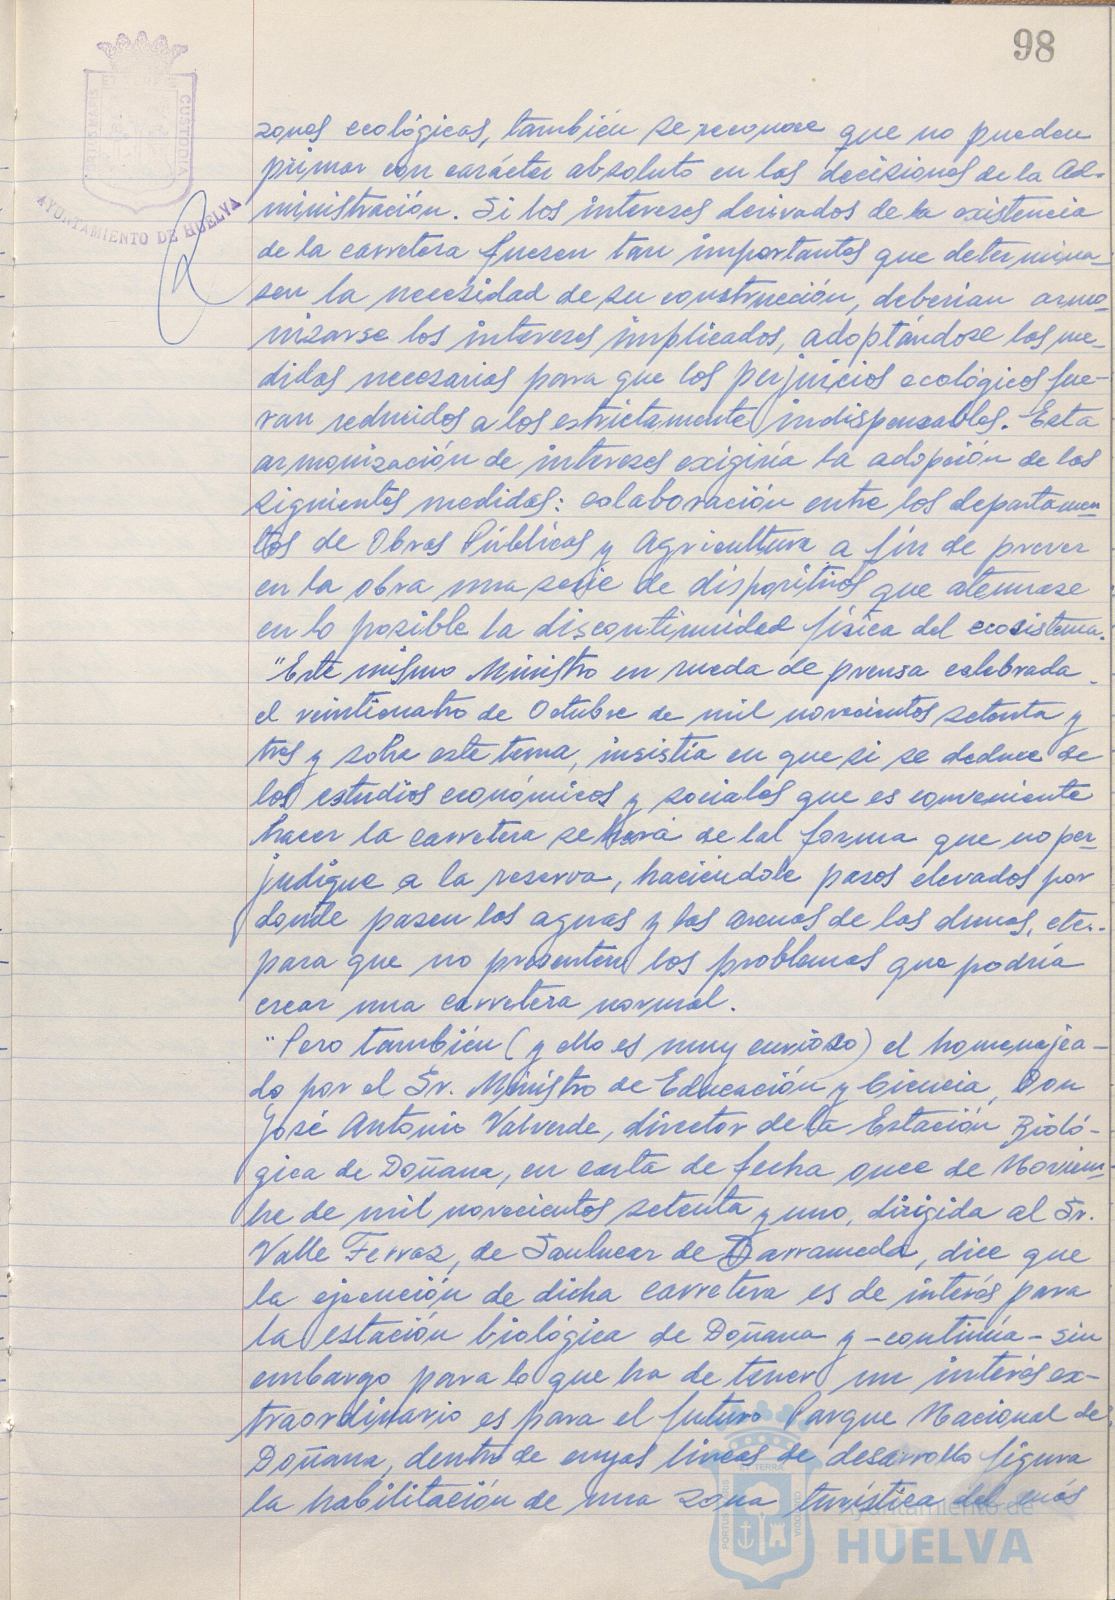 98
PORTUS MARIS
CUSTODIA
AYUNTAMIENTO DE HUELVA
zonas ecológicas, también se reconoce que no pueden
primar con carácter absoluto en las decisiones de la Ad-
ministración. Si los intereses derivados de la existencia
de la carretera fuesen tan importantes que determina-
sen la necesidad de su construcción, deberían armo-
nizarse los intereses implicados, adoptándose las me-
didas necesarias para que los perjuicios ecológicos fue-
ran reducidos a los estrictamente indispensables. Esta
armonización de intereses exigiría la adopción de las
siguientes medidas: colaboración entre los departamen-
tos de Obras Públicas y Agricultura a fin de prever
en la obra una serie de dispositivos que atenuase
en lo posible la discontinuidad física del ecosistema.
"Este mismo Ministro en rueda de prensa celebrada
el veinticuatro de Octubre de mil novecientos setenta y
tres y sobre este tema, insistía en que si se deduce de
los estudios económicos y sociales que es conveniente
hacer la carretera se hará de tal forma que no per-
judique a la reserva, haciéndole pasos elevados por
donde pasen las aguas y las arenas de las dunas, etc..
para que no presenten los problemas que podría
crear una carretera normal.
"Pero también (y ello es muy curioso) el homenajea-
do por el Sr. Ministro de Educación y Ciencia, Don
José Antonio Valverde, director de la Estación Bioló-
gica de Doñana, en carta de fecha once de Noviem-
bre de mil novecientos setenta y uno, dirigida al Sr.
Valle Ferraz, de Sanlucar de Barrameda, dice que
la ejecución de dicha carretera es de interés para
la estación biológica de Doñana y -continúa- sin
embargo para lo que ha de tener un interés ex-
traordinario es para el futuro Parque Nacional de
Doñana, dentro de cuyas lineas de desarrollo figura
la habilitación de una zona turística del más
PORTUS MARIS
ET TERRA
CUSTODIA
Ayuntamiento de
HUELVA